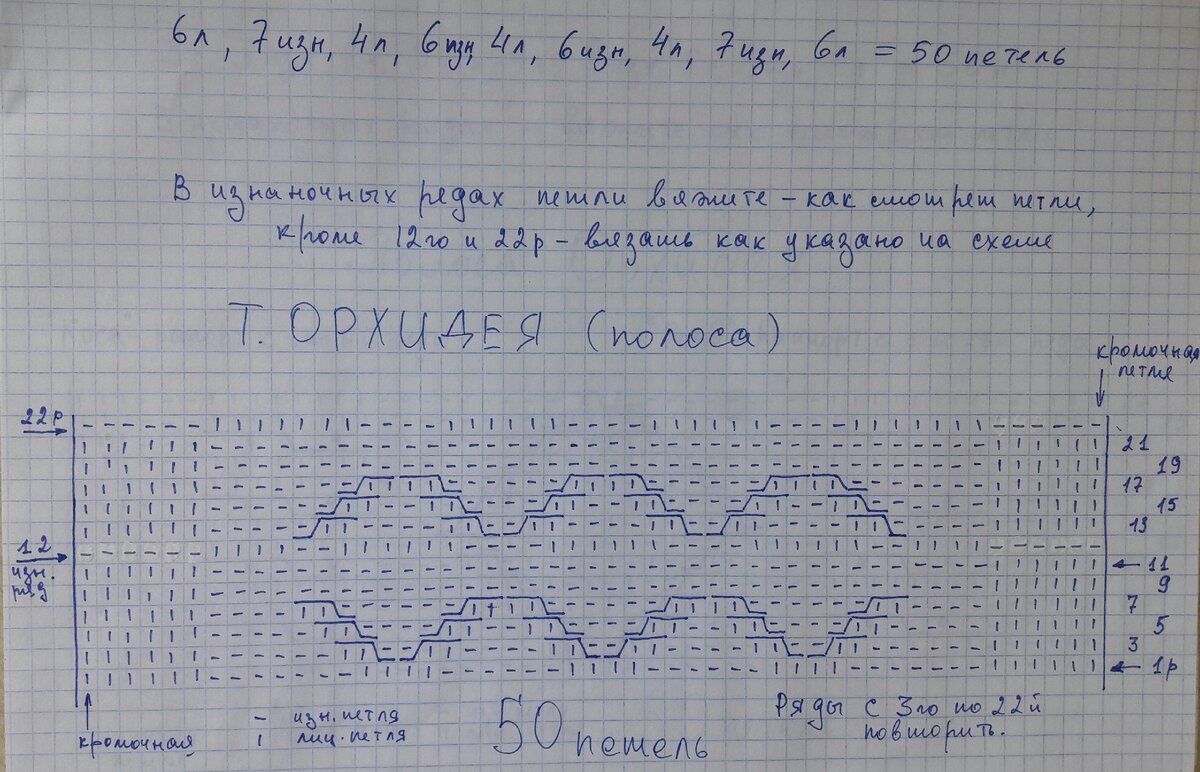 6л, 7изн, 4л, 6изн, 4л, 6изн, 4л, 7изн, 6л = 50 петель
В изнаночных редах петли вяжите – как смотрет петли,
кроме 12го и 22р – вязать как указано на схеме
Т. ОРХИДЕЯ (полоса)
кромочная
петля
22р
21
19
17
15
13
12
изн.
ряд
11
9
7
5
3
1р
кромочная
– изн. петля
ı лиц. петля
50 петель
Ряды с 3го по 22й
повторить.